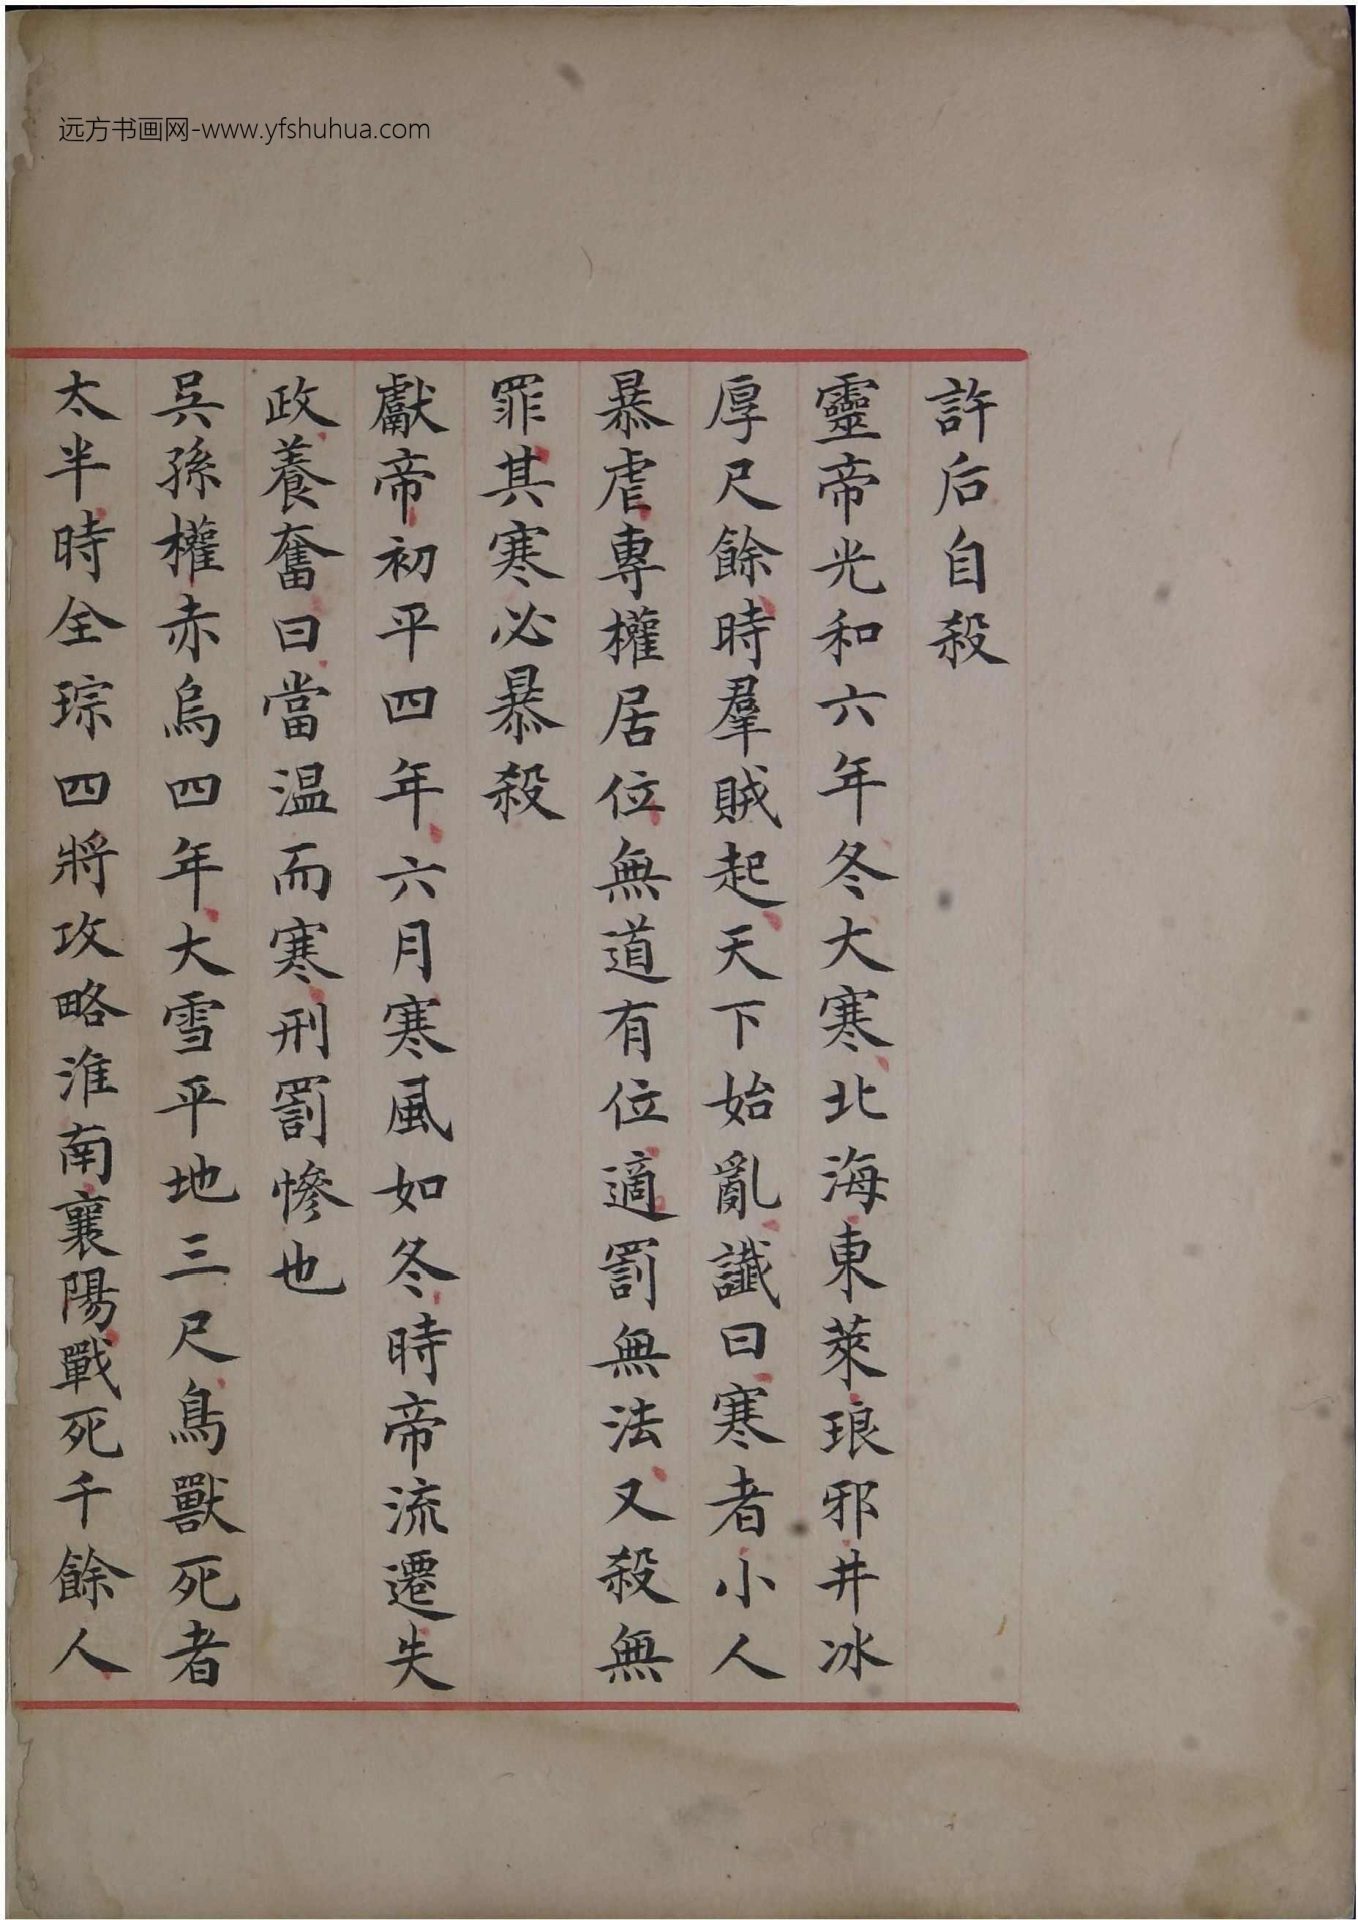 远方书画网-www.yfshuhua.com
許后自殺
靈帝光和六年冬大寒北海東萊琅邪井冰
厚尺餘時羣賊起天下始亂讖曰寒者小人
暴虐專權居位無道有位適罰無法又殺無
罪其寒必暴殺
獻帝初平四年六月寒風如冬時帝流遷失
政養奮曰當温而寒刑罰慘也
吳孫權赤烏四年大雪平地三尺鳥獸死者
太半時全琮四將攻略淮南襄陽戰死千餘人